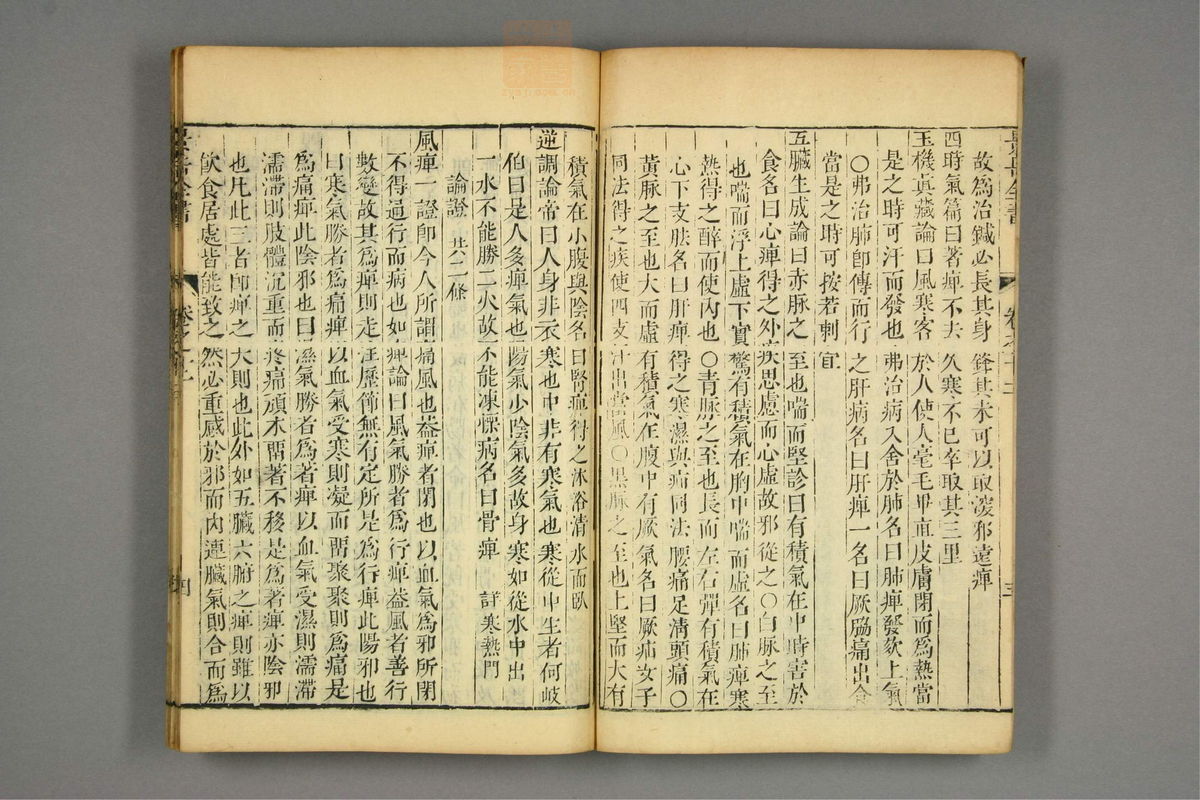 故為治鍼必長其身鋒其末可以取深邪遠痺
四時氣篇曰著痺不去久寒不已卒取其三里
玉機眞藏論曰風寒客於人使人毫毛畢直皮膚閉而為熱當
是之時可汗而發也弗治病入舍於肺名曰肺痺發欬上氣
○弗治肺卽傳而行之肝病名曰肝痺一名曰厥脇痛出食
當是之時可按若刺宜
五臟生成論曰赤脉之至也喘而堅診曰有積氣在中時害於
食名曰心痺得之外疾思慮而心虛故邪從之○白脉之至
也喘而浮上虛下實驚有積氣在胸中喘而虛名曰肺痺寒
熱得之醉而使內也○青脉之至也長而左右彈有積氣在
心下支胠名曰肝痺得之寒濕與疝同法腰痛足清頭痛○
黃脉之至也大而虛有積氣在腹中有厥氣名曰厥疝女子
同法得之疾使四支汗出當風○黑脉之至也上堅而大有
積氣在小腹與陰名曰腎痺得之沐浴清水而臥
逆調論帝曰人身非衣寒也中非有寒氣也寒從中生者何岐
伯曰是人多痺氣也陽氣少陰氣多故身寒如從水中出
一水不能勝二火故不能凍慄病名曰骨痺 詳寒熱門
論證 共二條
風痺一證卽今人所謂痛風也葢痺者閉也以血氣為邪所閉
不得通行而病也如痺論曰風氣勝者為行痺葢風者善行
數變故其為痺則走注歷節無有定所是為行痺此陽邪也
曰寒氣勝者為痛痺以血氣受寒則凝而畱聚聚則為痛是
為痛痺此陰邪也曰濕氣勝者為著痺以血氣受濕則濡滯
濡滯則肢體沉重而疼痛頑木畱著不移是為著痺亦陰邪
也凡此三者卽痺之大則也此外如五臟六腑之痺則雖以
飲食居處皆能致之然必重感於邪而內連臟氣則合而為